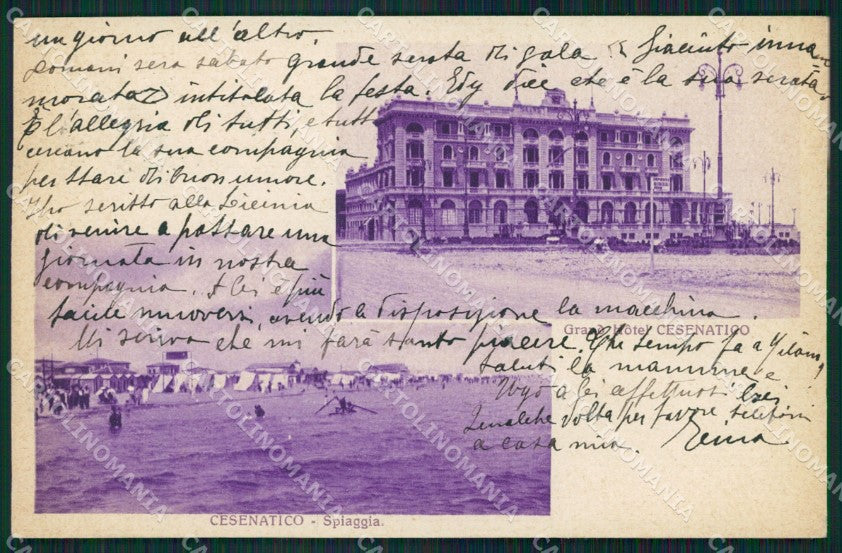 un giorno all'altro.
Domani sera sabato grande serata di gala. Giacinto inna
morata intitolata la festa. Edy dice che è la sua serata
è l'allegria di tutti, e tutti
cercano la sua compagnia
per stare di buon umore.
Ho scritto alla Licinia
di venire a passare una
giornata in nostra
compagnia. A lei è più
facile muoversi, avendo a disposizione la macchina.
Mi scriva che mi farà tanto piacere. Che tempo fa a Milano?
Saluti la mamma e
a lei affettuosi
Qualche volta per favore telefoni
a casa mia.
Grand Hôtel CESENATICO
CESENATICO - Spiaggia.
CARTOLINOMANIA